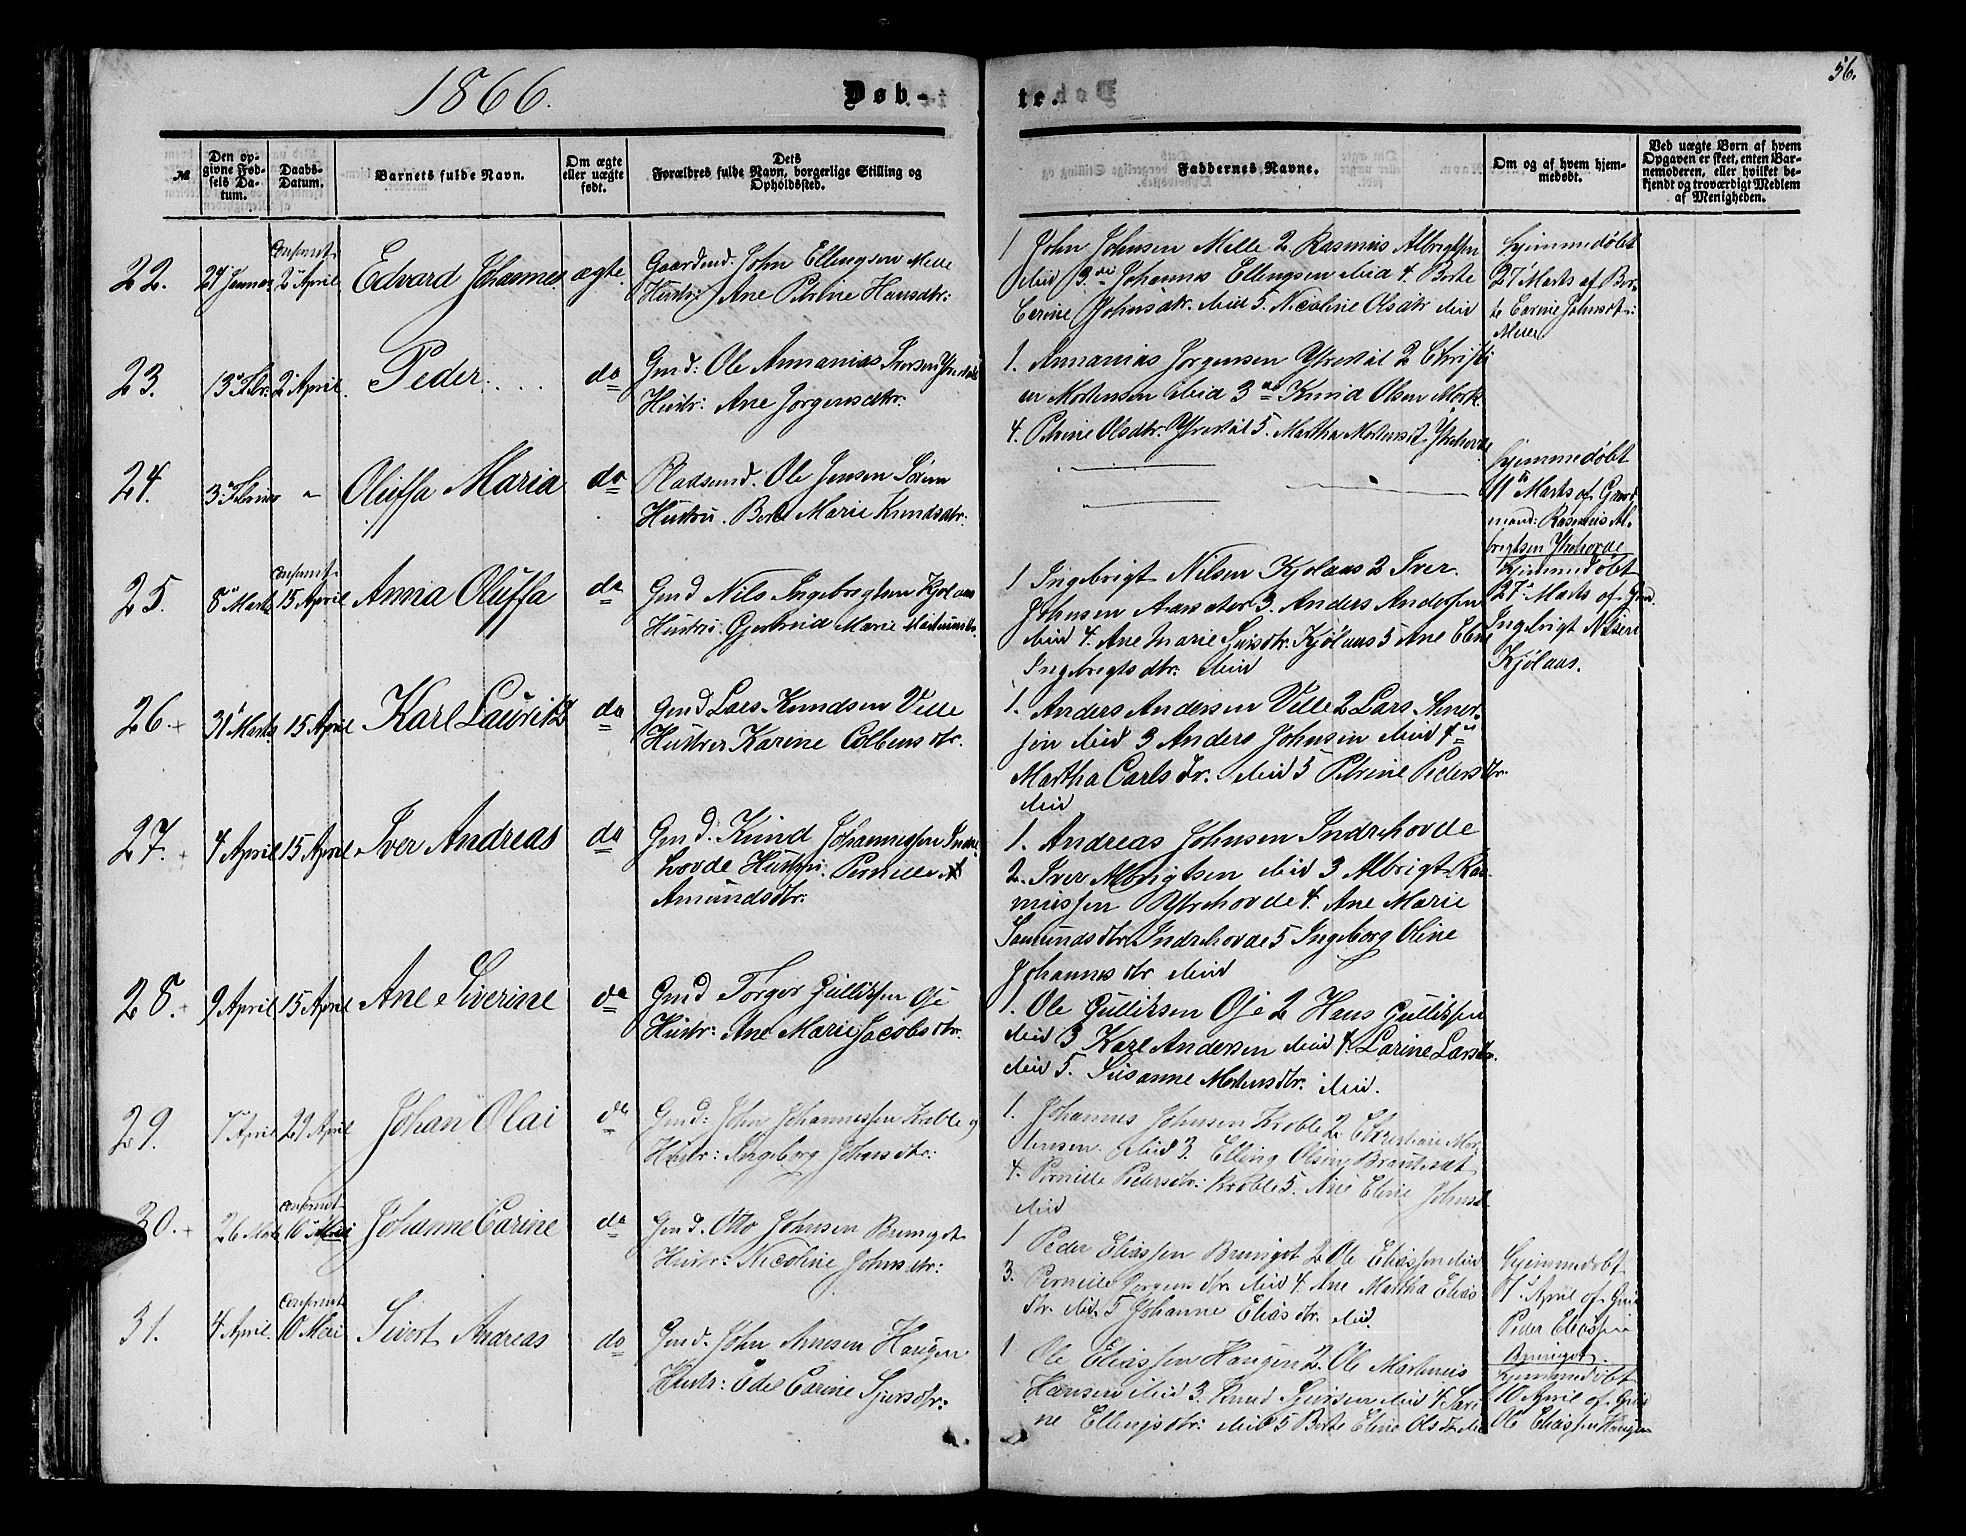 1866.
Døb-
te.
56.
№
Den op-
givne Fød-
sels Da-
tum.
Daabs-
Datum.
Barnets fulde Navn.
Om ægte
eller uægte
født.
Dets
Forældres fulde Navn, borgerlige Stilling og
Opholdssted.
Faddernes Navne.
Om og af hvem hjem-
medøbt.
Ved uægte Børn af hvem
Opgaven er skeet, enten Bar-
nemoderen, eller hvilket be-
kjendt og troværdigt Medlem
af Menigheden.
22.
24 Januar
2 April
Edvard Johannes
ægte
Gaardmd: John Ellingsen Melle
Hustr: Ane Petrine Hansdtr:
1 John Johnsen Melle 2 Rasmus Albrigtsen
ibid 3 Johannes Ellingsen ibid 4. Berte
Carine Johnsdtr. ibid 5. Nicoline Olsdtr ibid
hjemmedøbt
27 Marts af Ber-
te Carine Johnsdt:
Melle
23.
13 Febr:
2 April
Peder
do
Gmd: Ole Annanias Iversen
Hustr: Ane Jørgensdtr.
1. Annanias Jørgensen 2 Christi
en Mortensen ibid 3 Knud Olsen Mork
4. Petrine Olsdtr. 5. Martha Ytrehovde
24.
3
"
Oluffa Maria
do
Pladsmd: Ole Jensen
Hustru. Berte Marie Knudsdtr.
hjemmedøbt
11 Marts af Gaard
mand: Rasmus Al-
brigtsen Ytrehovde
25.
8 Marts
15 April
Anna Oluffa
do
Gmd Nils Ingebrigtsen Kjølaas
Hustru. Gjertrud Marie
1 Ingebrigt Nilsen Kjølaas 2 Iver
Johnsen Aarsæter 3. Anders Andersen
ibid 4. Ane Marie Kjølaas 5 Ane Eline
Ingebrigtsdtr. ibid
hjemmedøbt
27 Marts af Gmd.
Ingebrigt Nilsen
Kjølaas.
26.
31 Marts
15 April
Karl Lauritz
do
Gmd Lars Knudsen Velle
Hustru Karine Colbensdtr.
1. Anders Andersen Velle 2 Lars
ibid 3 Anders Johnsen ibid 4
Martha Carlsdtr. ibid 5 Petrine Pedersdtr.
ibid
27.
4 April
15 April
Iver Andreas
do
Gmd. Knud Johannessen Indre
hovde Hustru: Pernille
Amundsdtr:
1. Andreas Johnsen Indrehovde
2. Iver Albrigtsen ibid 3 Albrigt Ras-
mussen Ytrehovde 4. Ane Marie
Indrehovde 5 Ingeborg Oline
Johannesdtr ibid
28.
9 April
15 April
Ane Siverine
do
Gmd Torger Gulliksen Øje
Hustr: Ane Marie Jacobsdtr.
1. Ole Gulliksen Øje 2 Hans Gulliksen
ibid 3 Karl Andersen ibid 4. Larine Larsdtr.
ibid 5. Susanne Mortensdtr. ibid.
29.
7 April
29 April
Johan Olai
do
Gmd: John Johannessen Krable
Hustr: Ingeborg Johnsdtr:
1. Johannes Johnsen Krable 2 Christian Mor
tensen. ibid 3. Elling Olsen
4. Pernille Pedersdtr: Krable 5. Ane Eline Johnsd
ibid
30.
26 Marts
10 Mai
Johanne Carine
do
Gmd. Otto Johnsen Brungot
Hustr: Nicoline Johnsdtr:
1 Peder Eliassen Brungot 2 Ole Eliassen ibid
3. Pernille Jørgensdtr. ibid 4. Ane Martha Elias
dtr. ibid. 5 Johanne Eliasdtr. ibid.
hjemmedøbt
April af Gmd
Peder Eliassen
Brungot.
31.
4 April.
10 Mai
Sivert Andreas
do
Gmd. John Arnesen Haugen
Hustr: Ede Carine Sjursdtr:
1 Ole Eliassen Haugen 2. Ole Martinus
Hansen ibid 3. Knud Sjursen ibid 4
ne Ellingsdtr: ibid 5 Berte Eline Olsdtr ibid
hjemmedøbt
10 April af Gmd
Ole Eliassen Haugen